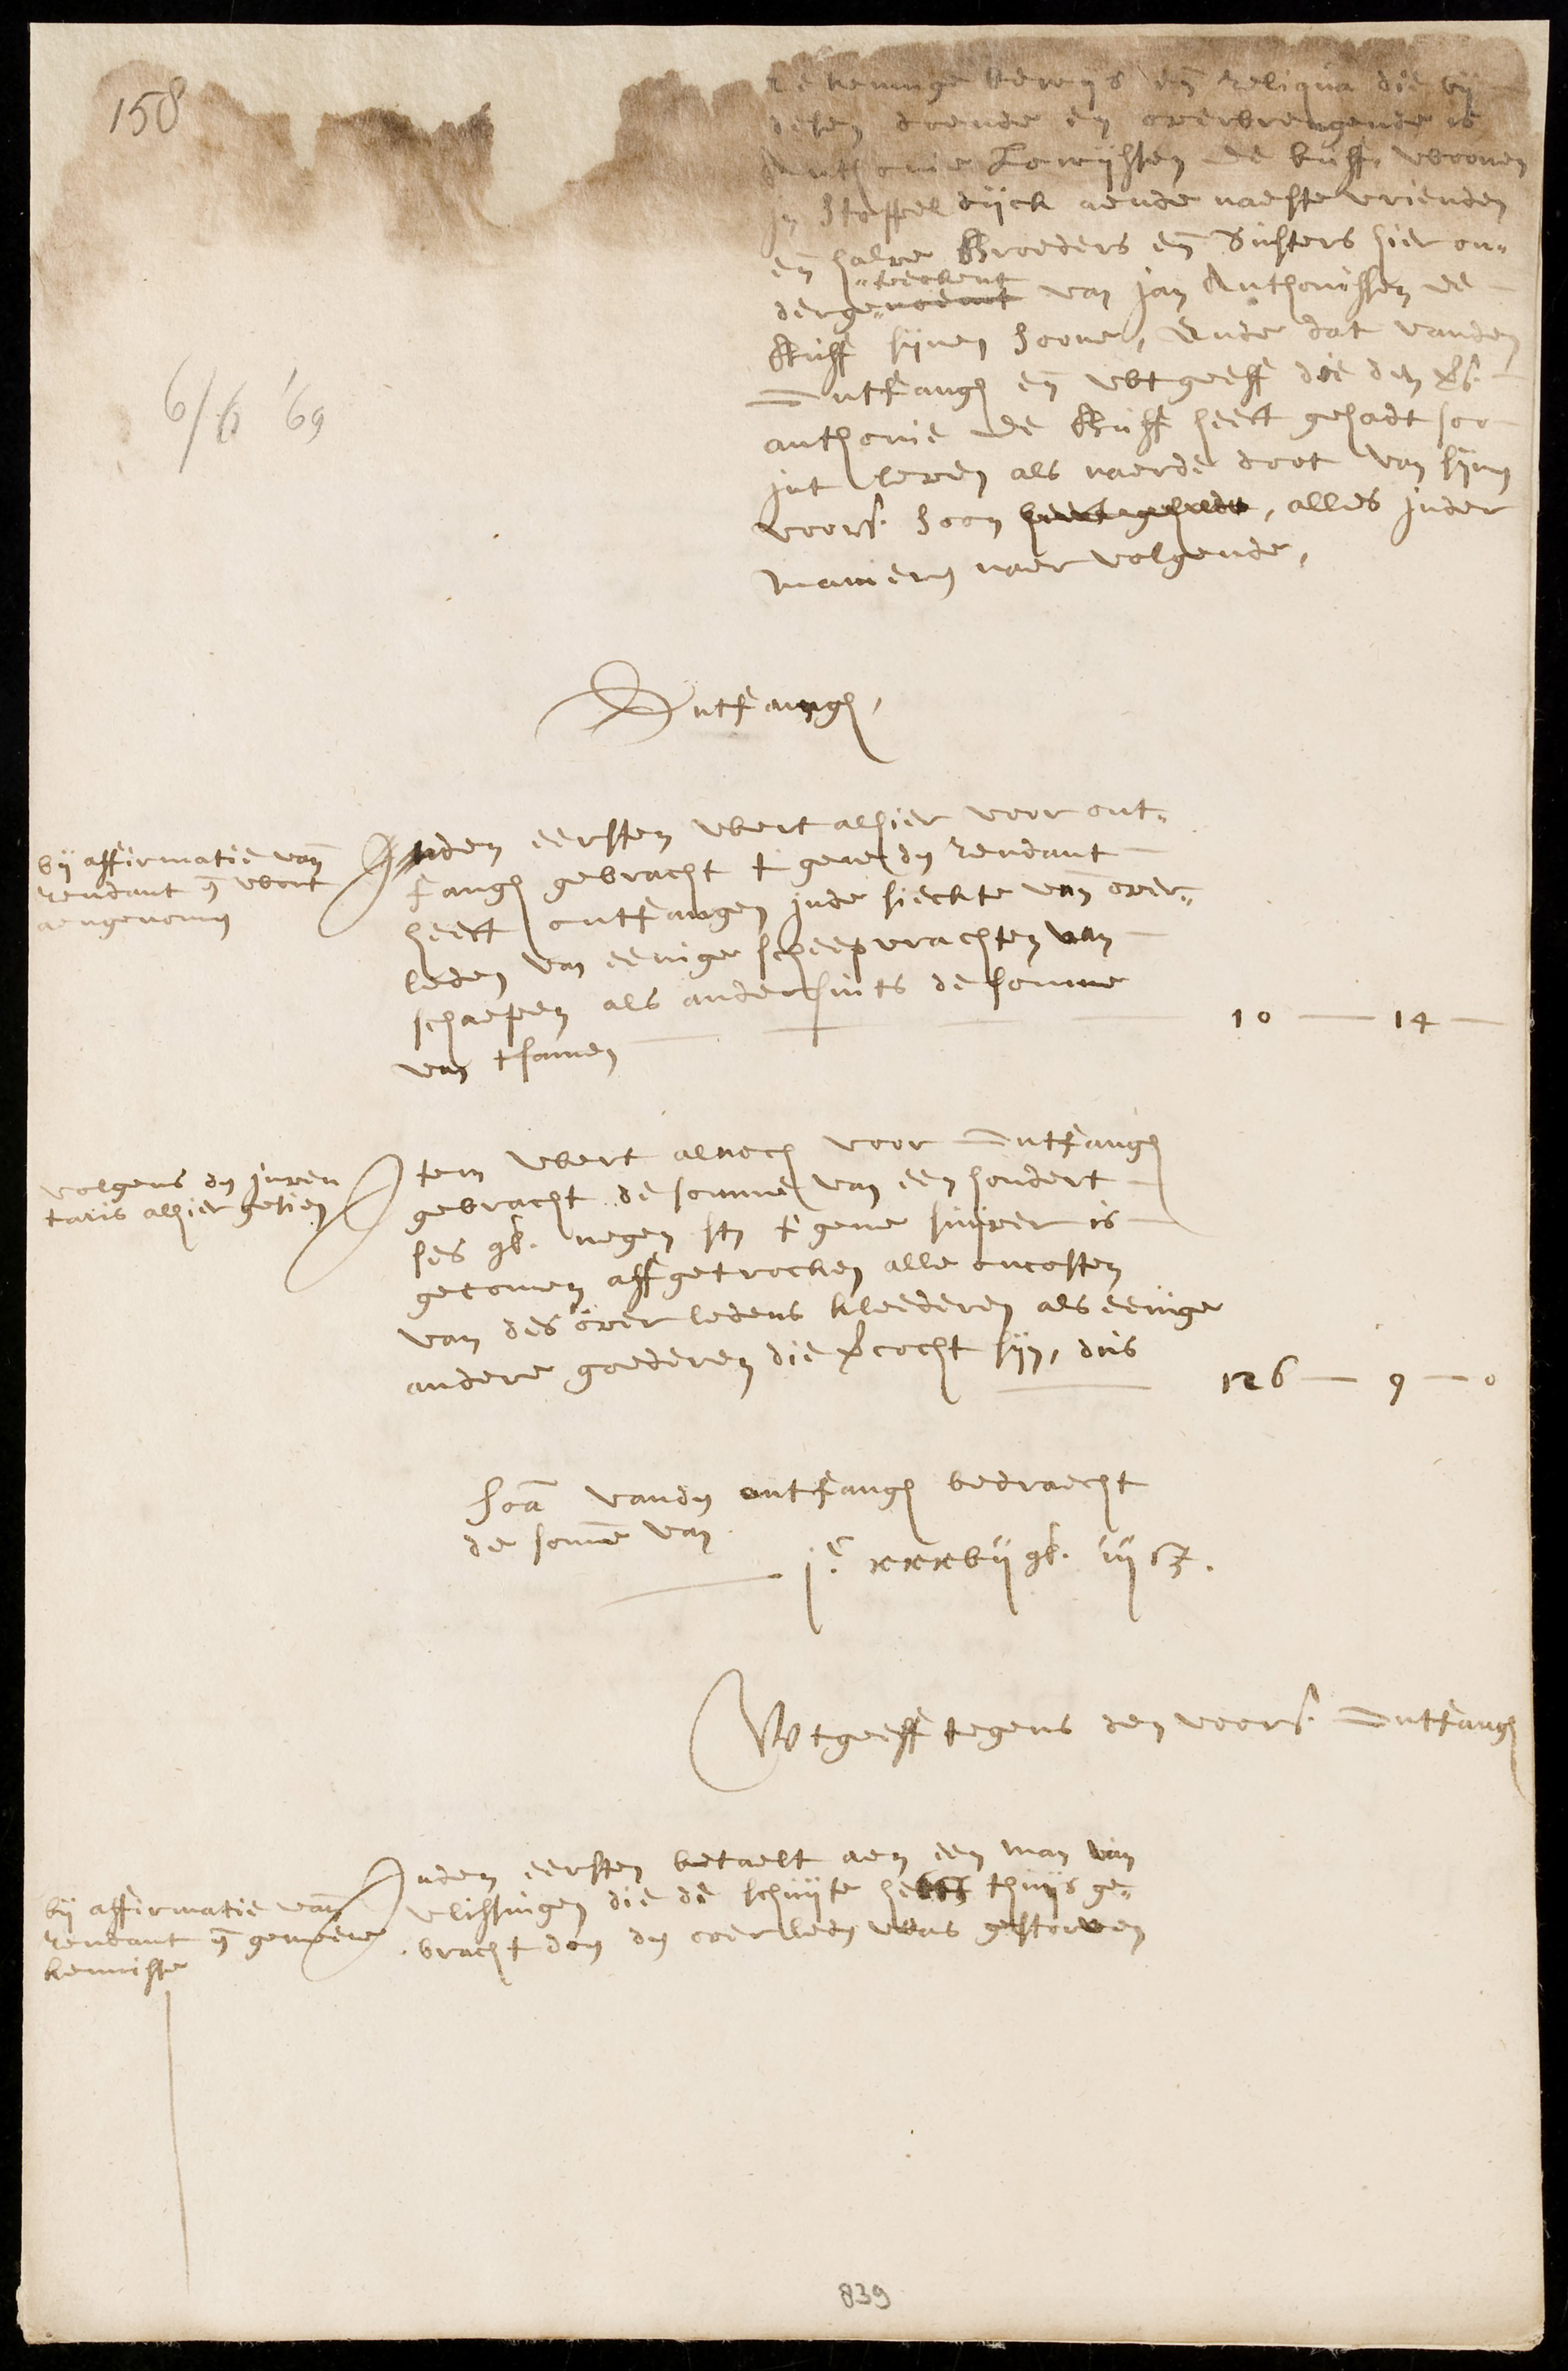 158
6/6 '69
Rekeninge bewijs en̄ reliqua die bij
desen doende en overbrengende is
Anthonie Lowijssen de buff, woonen
in Stoppeldijck aende naeste vrienden
en̄ halve Broeders en̄ Susters hier on„
„teeckent
derge„noemt van Jan Anthonissen de
Buff sijnen Soone, Ende dat vanden
Ontfangh en̄ wtgeeff die den vs.
anthonie de Buff heeft gehadt soo
int leven als naerde doot van sijnen
voors. Soon heeft gehadt, alles inder
manieren naer volgende,
Ontfangh,
bij affirmatie van
rendant en̄ wert
aengenomen
Inden eersten wert alhier voor ont„
fangh gebracht t gene den rendant
heeft ontfangen inde sieckte van over„
leden van eenige scheepvrachten van
schaepen als andersints de somme
van tsamen 10 — 14 —
volgens den inven
taris alhier gesien
Item wert alnoch voor Ontfangh
gebracht de somme van een hondert
ses gl. negen st t gene suijver is
gecomen affgetrocken alle oncosten
van des overledens kleederen als eenige
andere goederen die vercocht sijn, dus
126 — 9 — 0
Soā vanden ontfangh bedraecht
de som̄e van
jc xxxvij gl. iij st.
Wtgeeff tegens den voors. Ontfangh
bij affirmatie van
rendant en̄ gemeene
kennisse
Inden eersten betaelt aen een man van
vlissingen die de schuijte heeft thuijs ge„
bracht doen den overleden was gestorven
839